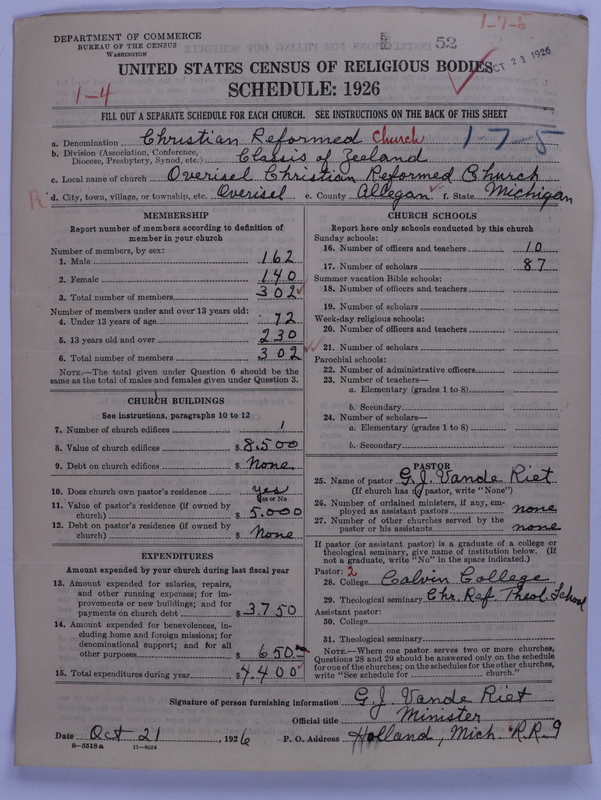 1-7-5
DEPARTMENT OF COMMERCE
BUREAU OF THE CENSUS
WASHINGTON
52
OCT 23 1926
UNITED STATES CENSUS OF RELIGIOUS BODIES
SCHEDULE: 1926
1-4
FILL OUT A SEPARATE SCHEDULE FOR EACH CHURCH. SEE INSTRUCTIONS ON THE BACK OF THIS SHEET
a. Denomination Christian Reformed Church 1-7-5
b. Division (Association, Conference, Diocese, Presbytery, Synod, etc.) Classis of Zeeland
c. Local name of church Overisel Christian Reformed Church
R d. City, town, village, or township, etc. Overisel e. County Allegan f. State Michigan
MEMBERSHIP
Report number of members according to definition of
member in your church
Number of members, by sex:
1. Male 162
2. Female 140
3. Total number of members 302
Number of members under and over 13 years old:
4. Under 13 years of age 72
5. 13 years old and over 230
6. Total number of members 302
NOTE.—The total given under Question 6 should be
same as the total of males and females given under Question 3.
CHURCH BUILDINGS
See instructions, paragraphs 10 to 12
7. Number of church edifices 1
8. Value of church edifices $ 8.500
9. Debt on church edifices $ None
10. Does church own pastor's residence yes
Yes or No
11. Value of pastor's residence (if owned by
church) $ 5.000
12. Debt on pastor's residence (if owned by
church) $ None
EXPENDITURES
Amount expended by church during last fiscal year
13. Amount expended for salaries, repairs,
and other running expenses; for im-
provements or new buildings; and for
payments on church debt $ 3.750
14. Amount expended for benevolences, in-
cluding home and foreign missions; for
denominational support; and for all
other purposes $ 650
15. Total expenditures during year $ 4.400
CHURCH SCHOOLS
Report here only schools conducted by this church
Sunday schools:
16. Number of officers and teachers 10
17. Number of scholars 87
Summer vacation Bible schools:
18. Number of officers and teachers
19. Number of scholars
Week-day religious schools:
20. Number of officers and teachers
21. Number of scholars
Parochial schools:
22. Number of administrative officers
23. Number of teachers—
a. Elementary (grades 1 to 8)
b. Secondary
24. Number of scholars—
a. Elementary (grades 1 to 8)
b. Secondary
PASTOR
25. Name of pastor G. J. Vande Riet
(If church has no pastor, write "None")
26. Number of ordained ministers, if any, em-
ployed as assistant pastors none
27. Number of other churches served by the
pastor or his assistants none
If pastor (or assistant pastor) is a graduate of a college or
theological seminary, give name of institution below. (If
not a graduate, write "No" in the space indicated.)
Pastor: 2
28. College Calvin College
29. Theological seminary Chr. Ref. Theol. School
Assistant pastor:
30. College
31. Theological seminary
NOTE.—Where one pastor serves two or more churches,
Questions 28 and 29 should be answered only on the schedule
for one of the churches; on the schedules for the other churches,
write "See schedule for church."
Signature of person furnishing information G. J. Vande Riet
Official title Minister
Date Oct 21, 1926 P. O. Address Holland, Mich. R.R. 9
8-5518 a 11-9024